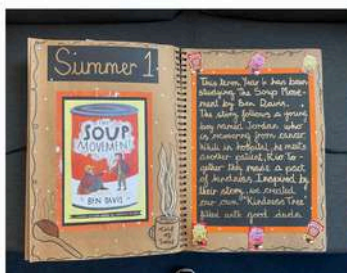 Summer 1
THE
SOUP
MOVEMENT
BEN DAVIS
This term, Year 4 has been
studying The Soup Move-
ment by Ben Davis.
The story follows a young
boy named Jordan who
is recovering from cancer.
While in hospital, he meets
another patient, Rio. To-
gether they made a pact
of kindness. Inspired by
their story, we created
our own "Kindness Tree"
filled with good deeds.